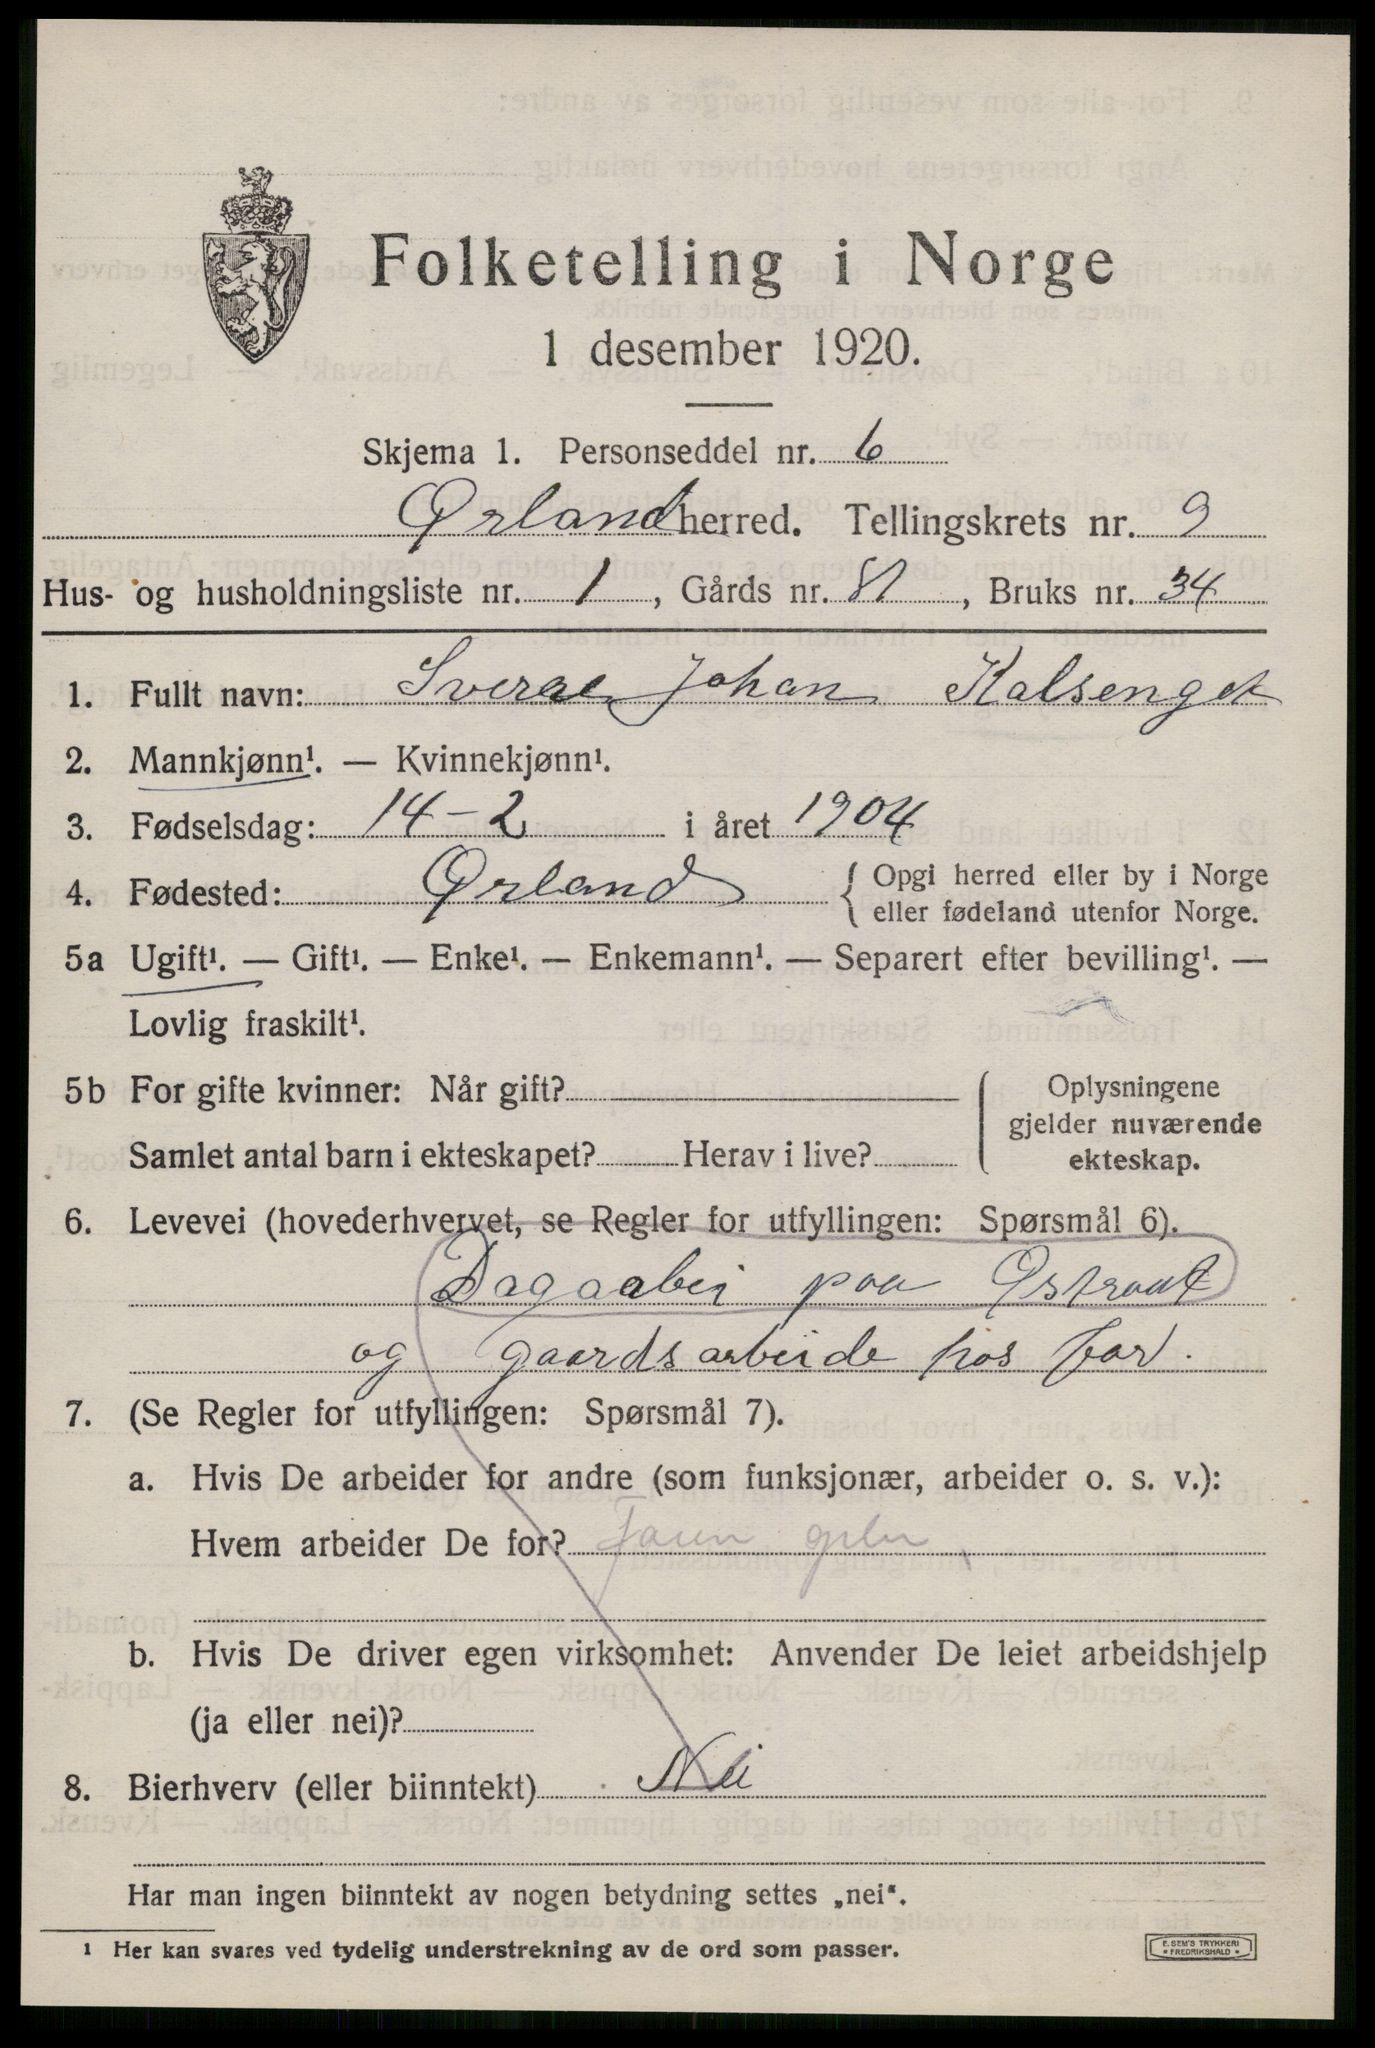 Folketelling i Norge
1 desember 1920.
Skjema 1. Personseddel nr. 6
Ørland herred. Tellingskrets nr. 9
Hus- og husholdningsliste nr. 1, Gårds nr. 81, Bruks nr. 34
1. Fullt navn: Sverre Johan Kalsenget
2. Mannkjønn¹. — Kvinnekjønn¹.
3. Fødselsdag: 14-2 i året 1904
4. Fødested: Ørland { Opgi herred eller by i Norge
eller fødeland utenfor Norge.
5a Ugift¹. — Gift¹. — Enke¹. — Enkemann¹. — Separert efter bevilling¹. —
Lovlig fraskilt¹.
5b For gifte kvinner: Når gift?
Samlet antal barn i ekteskapet? Herav i live?
Oplysningene
gjelder nuværende
ekteskap.
6. Levevei (hovederhvervet, se Regler for utfyllingen: Spørsmål 6).
Dagaabei paa Østraat
og gaardsarbeide hos far.
7. (Se Regler for utfyllingen: Spørsmål 7).
a. Hvis De arbeider for andre (som funksjonær, arbeider o. s. v.):
Hvem arbeider De for?
b. Hvis De driver egen virksomhet: Anvender De leiet arbeidshjelp
(ja eller nei)?
8. Bierhverv (eller biinntekt) Nei
Har man ingen biinntekt av nogen betydning settes „nei".
¹ Her kan svares ved tydelig understrekning av de ord som passer.
E. SEM'S TRYKKERI
FREDRIKSHALD